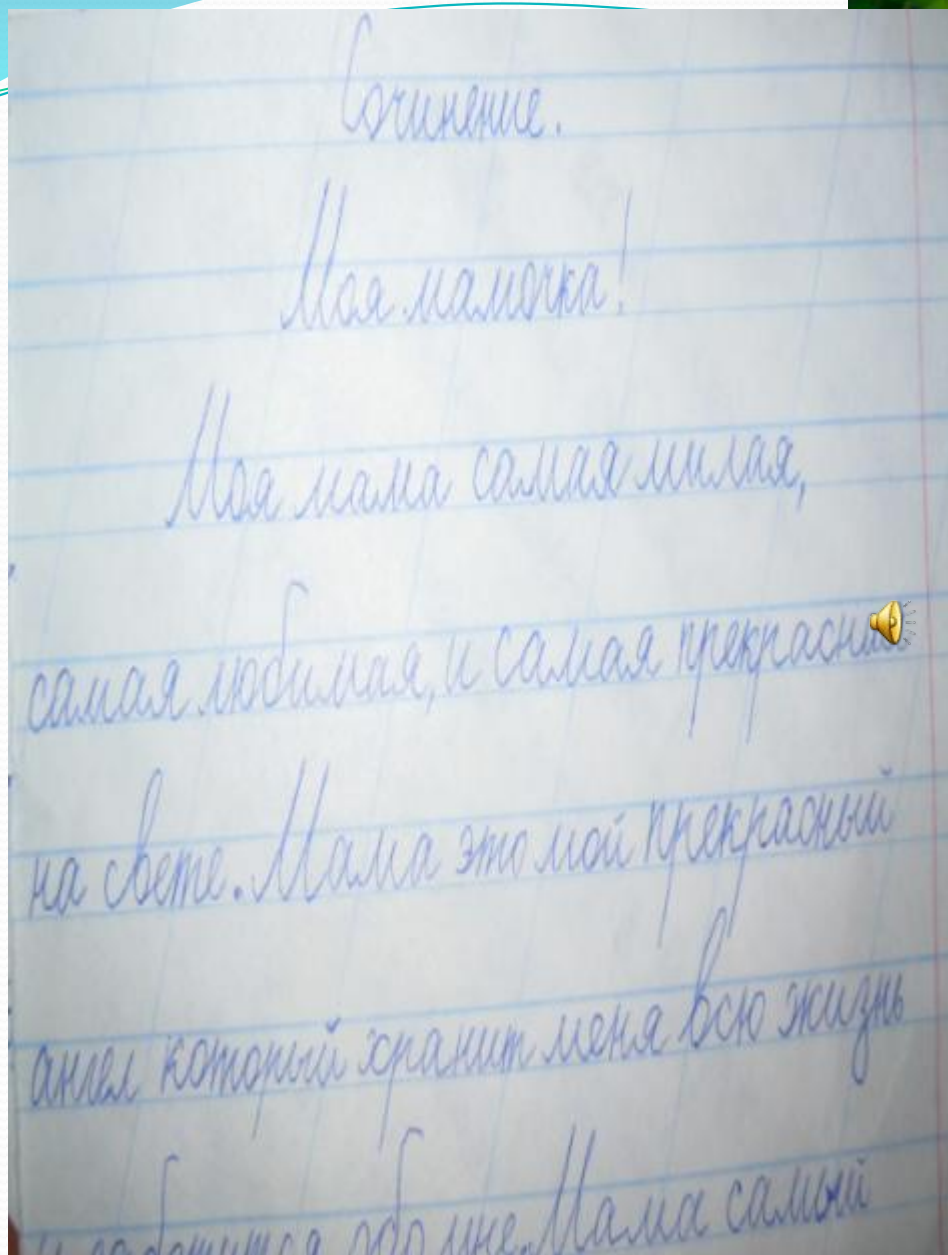 Сочинение.
Моя мамочка!
Моя мама самая милая,
самая любимая, и самая
на свете. Мама это мой прекрасный
ангел который хранит меня всю жизнь
и заботится обо мне. Мама самый